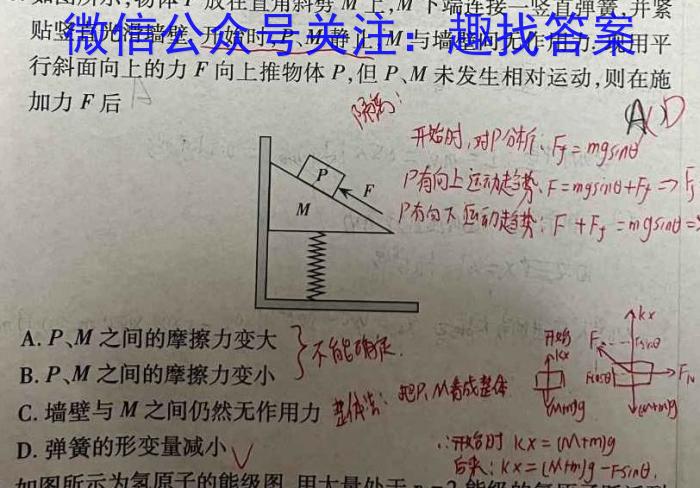 如图所示,物体 P 放在直角斜劈 M 上,M 下端连接一竖直弹簧,并紧
贴竖直光滑墙壁,开始时,P、M 静止,M 与墙壁间无作用力,现用平
微信公众号关注:趣找答案
行斜面向上的力 F 向上推物体 P,但 P、M 未发生相对运动,则在施
加力 F 后
A
隔离:
A(D
开始时,对P分析:Ff=mgsinθ
P有向上运动趋势:F=mgsinθ+Ff=>F
P有向下运动趋势:F+Ff=mgsinθ=>
P
F
M
A. P、M 之间的摩擦力变大
B. P、M 之间的摩擦力变小
不能确定.
C. 墙壁与 M 之间仍然无作用力
整体法:把P、M看成整体
D. 弹簧的形变量减小
开始
kx
(M+m)g
kx
F
Fsinθ
Fcosθ
FN
(M+m)g
∴开始时 kx=(M+m)g
后来:kx=(M+m)g-Fsinθ.
如图所示为氢原子的能级图,用大量处于 n=2 能级的氢原子